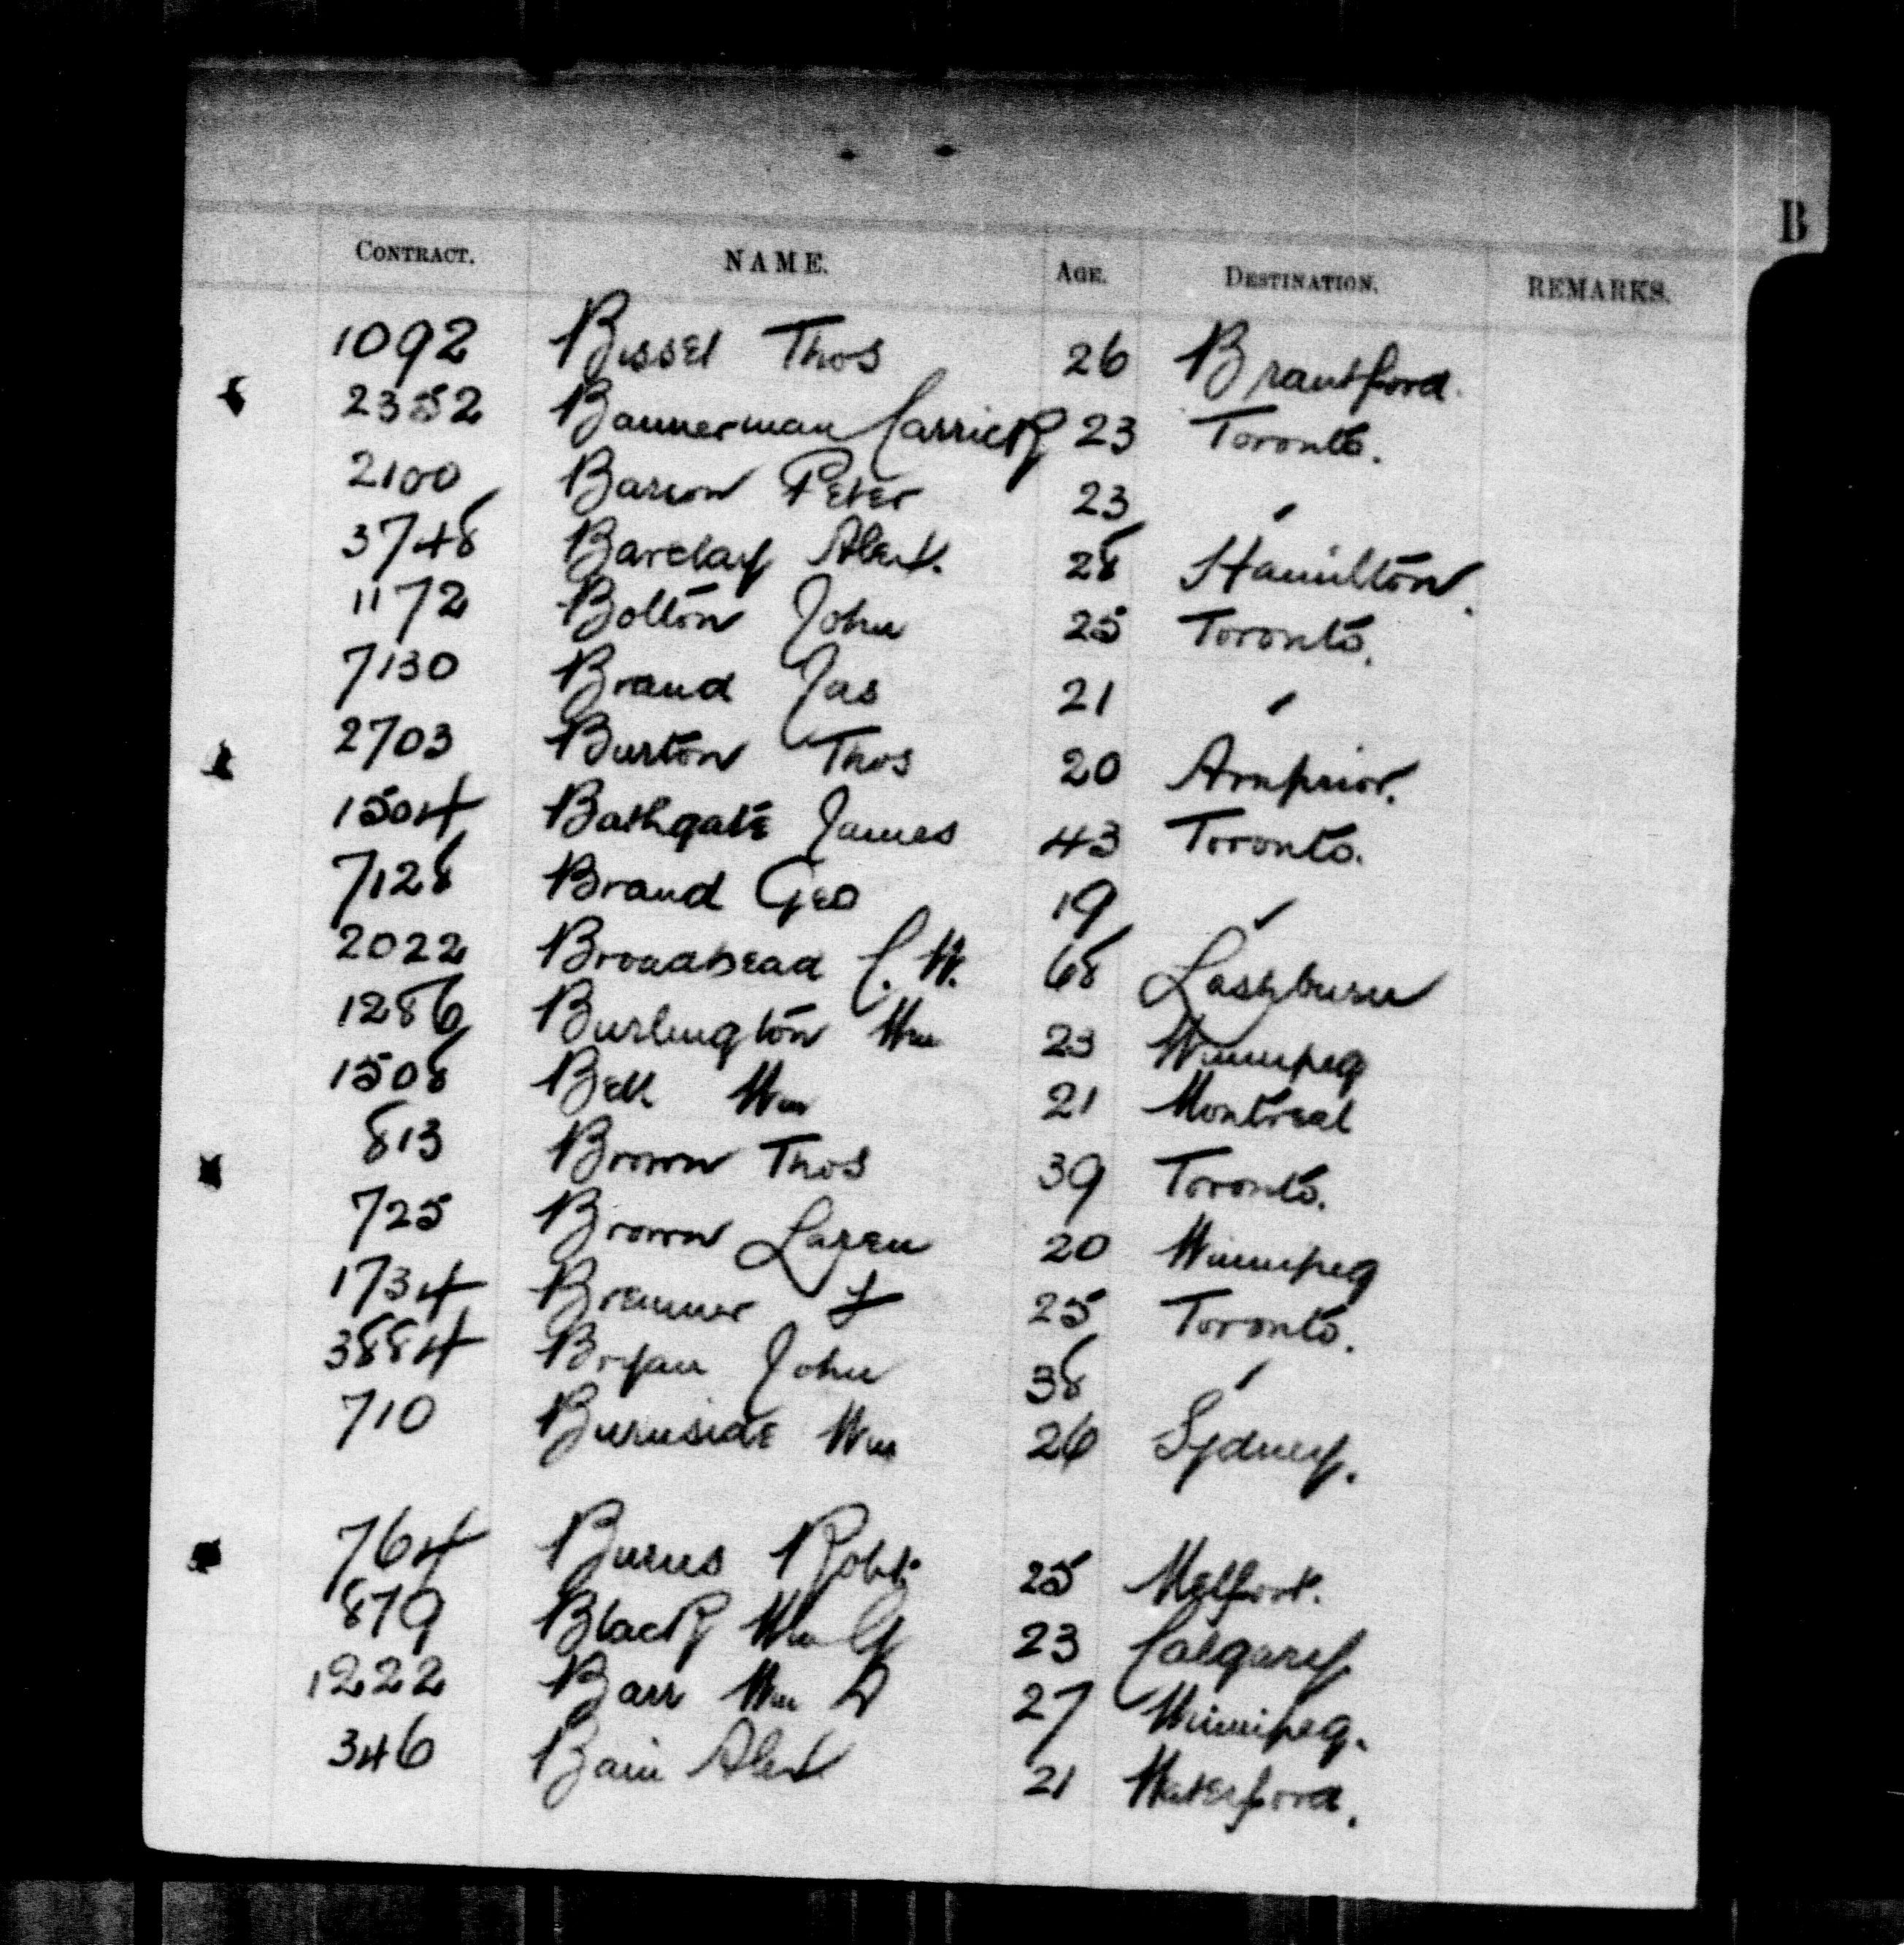 B
CONTRACT. NAME. AGE. DESTINATION. REMARKS.
1092 Bissel Thos 26 Brantford.
2352 Bannerman Carrick 23 Toronto.
2100 Barron Peter 23 "
3748 Barclay Alex. 28 Hamilton.
1172 Bolton John 25 Toronto.
7130 Brand Jas 21 "
2703 Burton Thos 20 Arnprior.
1504 Bathgate James 43 Toronto.
7128 Brand Geo 19 "
2022 Broadhead C. W. 68 Lashburn
1286 Burlington Wm 23 Winnipeg
1508 Bell Wm 21 Montreal
813 Brown Thos 39 Toronto.
725 Brown Lazen 20 Winnipeg
1734 Bremner 25 Toronto.
3884 Bryan John 38 "
710 Burnside Wm 26 Sydney.
764 Burns Robt. 25 Melfort.
879 Black Wm G 23 Calgary
1222 Barr Wm D 27 Winnipeg.
346 Bain Alex 21 Waterford.